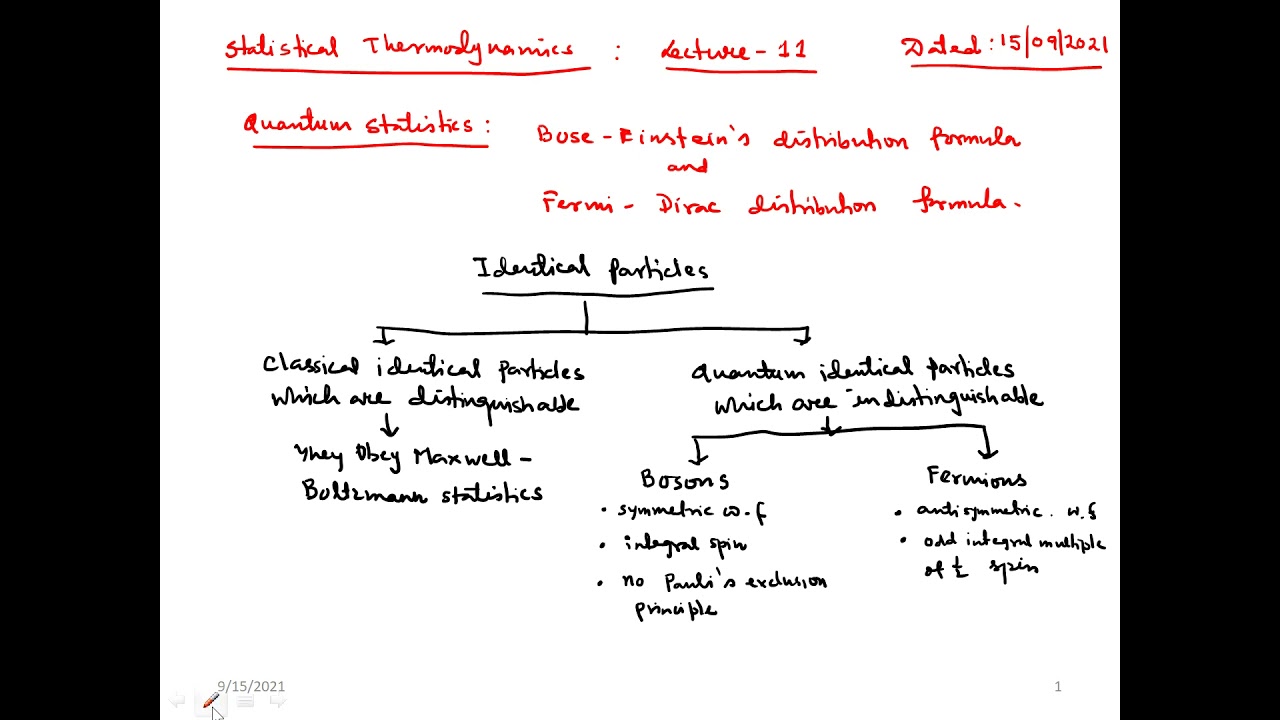 Statistical Thermodynamics : Lecture - 11 Dated : 15/09/2021
Quantum Statistics : Bose - Einstein's distribution formula
and
Fermi - Dirac distribution formula.
Identical particles
Classical identical particles
which are distinguishable
They Obey Maxwell -
Boltzmann statistics
Quantum identical particles
which are indistinguishable
Bosons
• symmetric w.f
• integral spin
• no Pauli's exclusion
principle
Fermions
• antisymmetric. w.f
• odd integral multiple
of 1/2 spin
9/15/2021
1